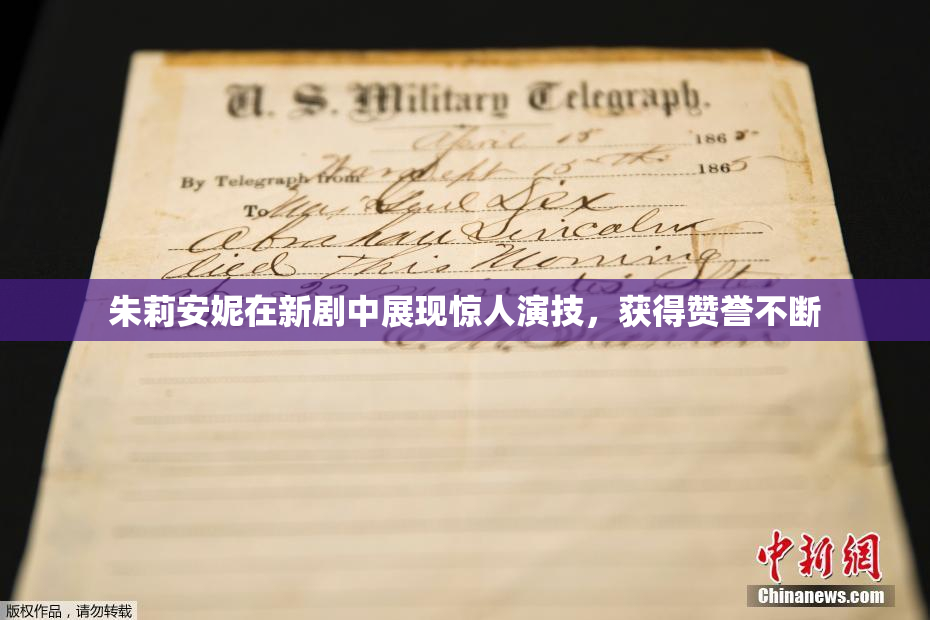 U. S. Military Telegraph.
April 15 1865
By Telegraph from War Dept 15th 1865
To Maj Genl Dix
Abraham Lincoln
died This Morning
22 minutes after
朱莉安妮在新剧中展现惊人演技，获得赞誉不断
E. M. Stanton
中新網
Chinanews.com
版权作品，请勿转载